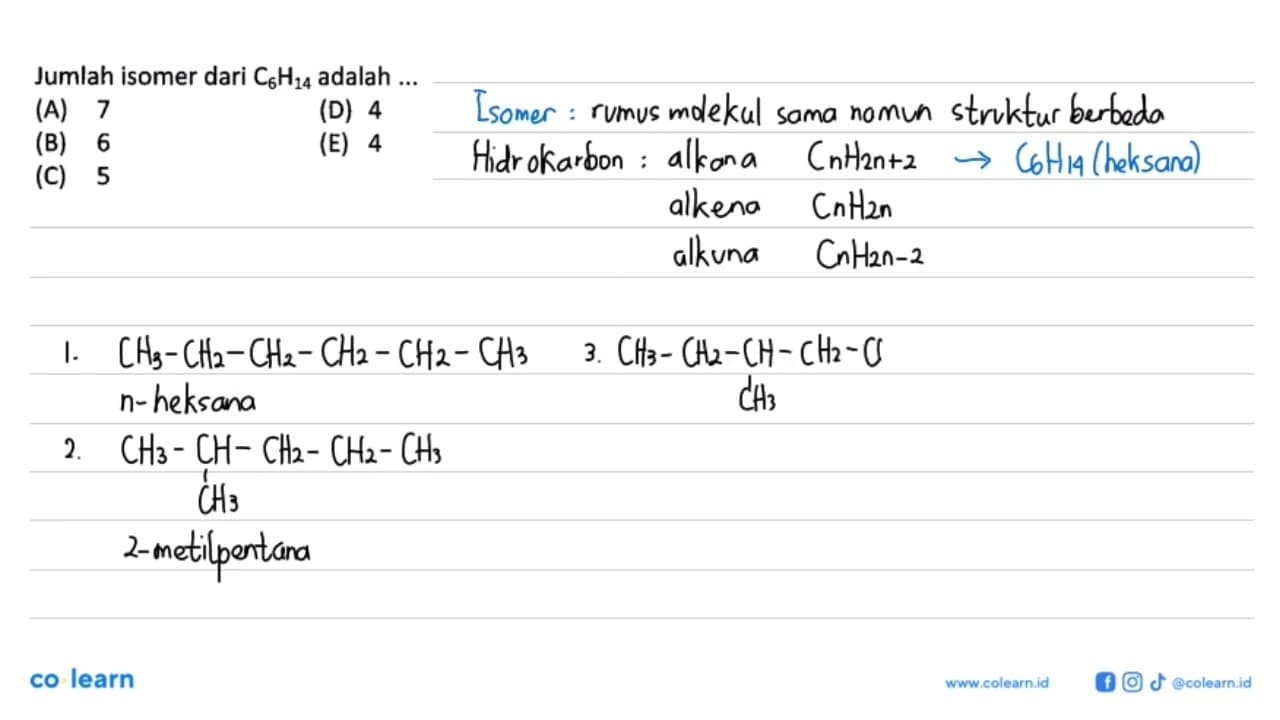 Jumlah isomer dari C₆H₁₄ adalah ...
(A) 7 (D) 4
(B) 6 (E) 4
(C) 5
Isomer : rumus molekul sama namun struktur berbeda
Hidrokarbon : alkana CnH2n+2 → C6H14 (heksana)
alkena CnH2n
alkuna CnH2n-2
1. CH3-CH2-CH2-CH2-CH2-CH3
n-heksana
2. CH3-CH-CH2-CH2-CH3
CH3
2-metilpentana
3. CH3-CH2-CH-CH2-C
CH3
co learn
www.colearn.id
@colearn.id